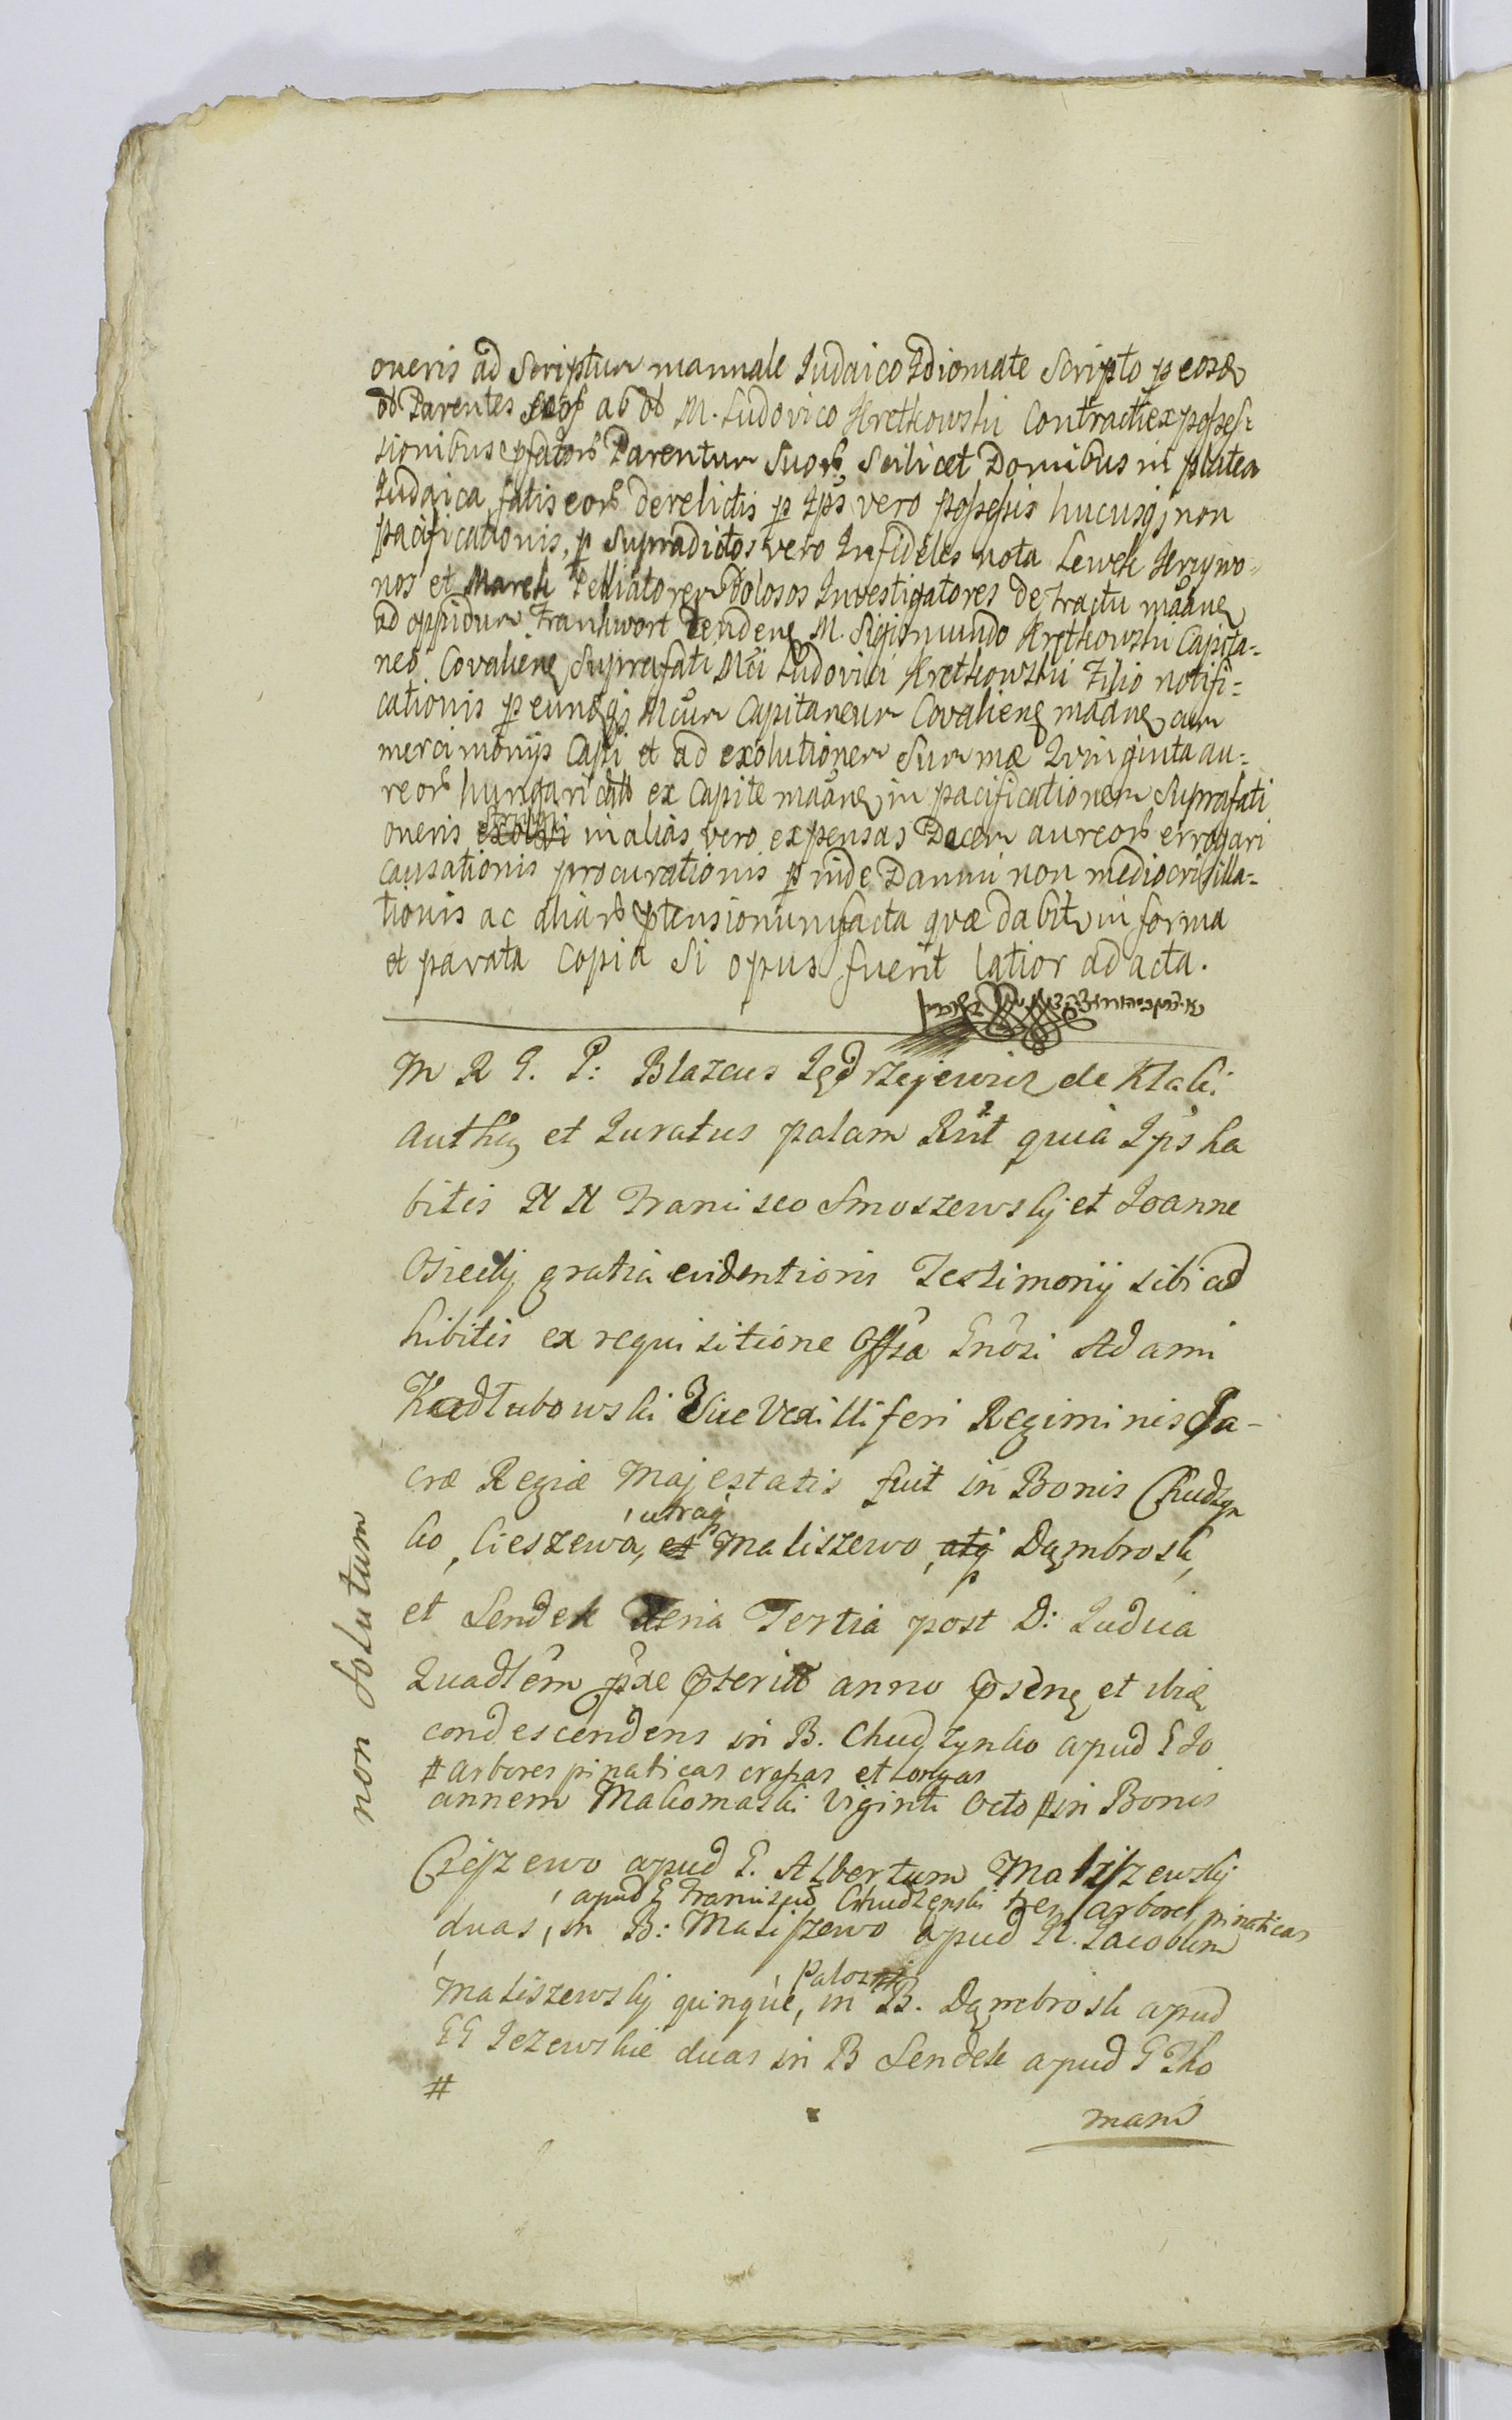 oneris ad Scriptum manuale Iudaico Idiomate Scripto p eosdem
et Parentes Suos ab et M. Ludovico Kretkowski Contracti ex posses=
sionibus pfatorum Parentum Suorum, Scilicet Domibus in platea
Iudaica fatis eorum derelictis p Ipsos vero possessis hucusqj non
pacificationis, p Supradictos vero Infideles nota Lewek Krzywo=
nos et Marek Pelliatorem dolosos Investigatores de tractu
ad oppidum Frankwort tenden M. Sigismundo Kretkowski Capita=
neo Covalien Suprafati Mci Ludovici Kretkowski Filio notifi=
cationis p eundemqj Mcum Capitaneum Covalien cum
mercimonijs Capi et ad exolutionem Summæ Qvinginta au=
reorum hungaricalium ex Capite in pacificationem Suprafati
oneris in alias vero expensas Decem aureorum errogari
causationis procurationis p inde Damni non mediocris illa=
tionis ac aliarum ptensionum facta qvæ dabitur in forma
et parata Copia Si opus fuerit latior ad acta.
M R G. P: Blazeus Jędrzejewicz de Klaki
Authen et Iuratus palam Rnt quia Ipse ha
bitis N N Francisco Smoszewsky et Joanne
Osiecky gratia evidentioris Testimonij sibi ad
hibitis ex requisitione Offsa Gnosi Adami
Kadłubowski Vice Vexilliferi Regiminis Sa-
cræ Regiæ Majestatis fuit in Bonis Chudzyn
ko, Cieszewo, utraqj Maliszewo, Dąmbrosk,
et Lendek Feria Tertia post D: Iudica
Quadlem pxe pterita anno psenti et ibidem
condescendens in B. Chudzynko apud G Jo
# arbores pinaticas crassas et longas
annem Makomaski viginti octo # in Bonis
Cieszewo apud G. Albertum Maliszewsky
, apud G Franciscum Chudzenski tres arbores pinaticas
duas, in B: Maliszewo apud N. Jacobum
Maliszewsky quinque, in B. Dąmbrosk apud
GG Jezewskie duas in B Lendek apud G Tho
#
mam
non solutum